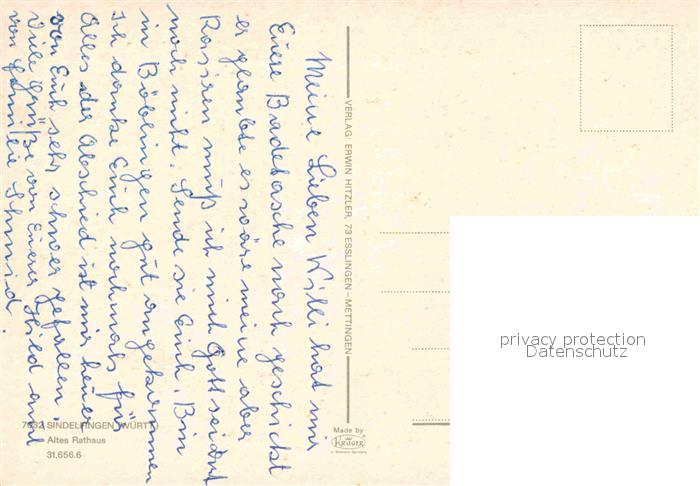 Meine Lieben Willi hat mir
Eure Badetasche nach geschickt
er glaubte es wäre meine aber
Rasiren muß ich mich Gott sei dank
noch nicht. Sende sie Euch. Bin
in Böblingen gut angekommen
ich danke Euch nochmals für
Alles der Abschied ist mir heuer
von Euch sehr schwer gefallen.
Viele Grüße von Eurer Hild und
von Familie Schmid.
VERLAG: ERWIN HITZLER, 73 ESSLINGEN - METTINGEN
7032 SINDELFINGEN (WÜRTT.)
Altes Rathaus
31.656.6
Made by
Krüger
in Western-Germany
privacy protection
Datenschutz